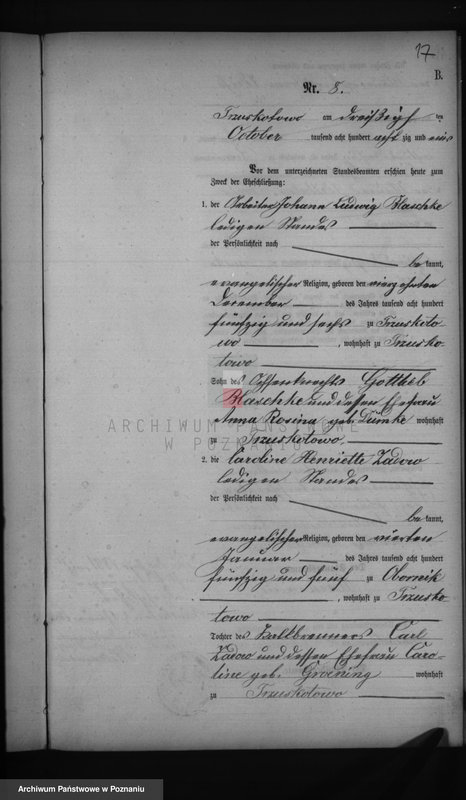 17
B.
Nr. 8.
Truskotowo am dreißigsten
October tausend acht hundert acht zig und eins
Vor dem unterzeichneten Standesbeamten erschien heute zum
Zweck der Eheschließung:
1. der Arbeiter Johann Ludwig Blaschke
ledigen Standes
der Persönlichkeit nach
be kannt,
evangelischer Religion, geboren den vierzehnten
December des Jahres tausend acht hundert
fünfzig und sechs zu Truskoto
wo , wohnhaft zu Trusko
towo
Sohn des Ochsenknechts Gottlieb
Blaschke und dessen Ehefrau
Anna Rosina geb. Dümke wohnhaft
ARCHIWUM PAŃSTWOWE
W POZNANIU
zu Truskotowo.
2. die Caroline Henriette Zadow
ledigen Standes
der Persönlichkeit nach
be kannt,
evangelischer Religion, geboren den vierten
Januar des Jahres tausend acht hundert
fünfzig und fünf zu Obornik
, wohnhaft zu Trusko
towo
Tochter des Kalkbrenners Carl
Zadow und dessen Ehefrau Caro-
line geb. Groening wohnhaft
zu Truskotowo
Archiwum Państwowe w Poznaniu